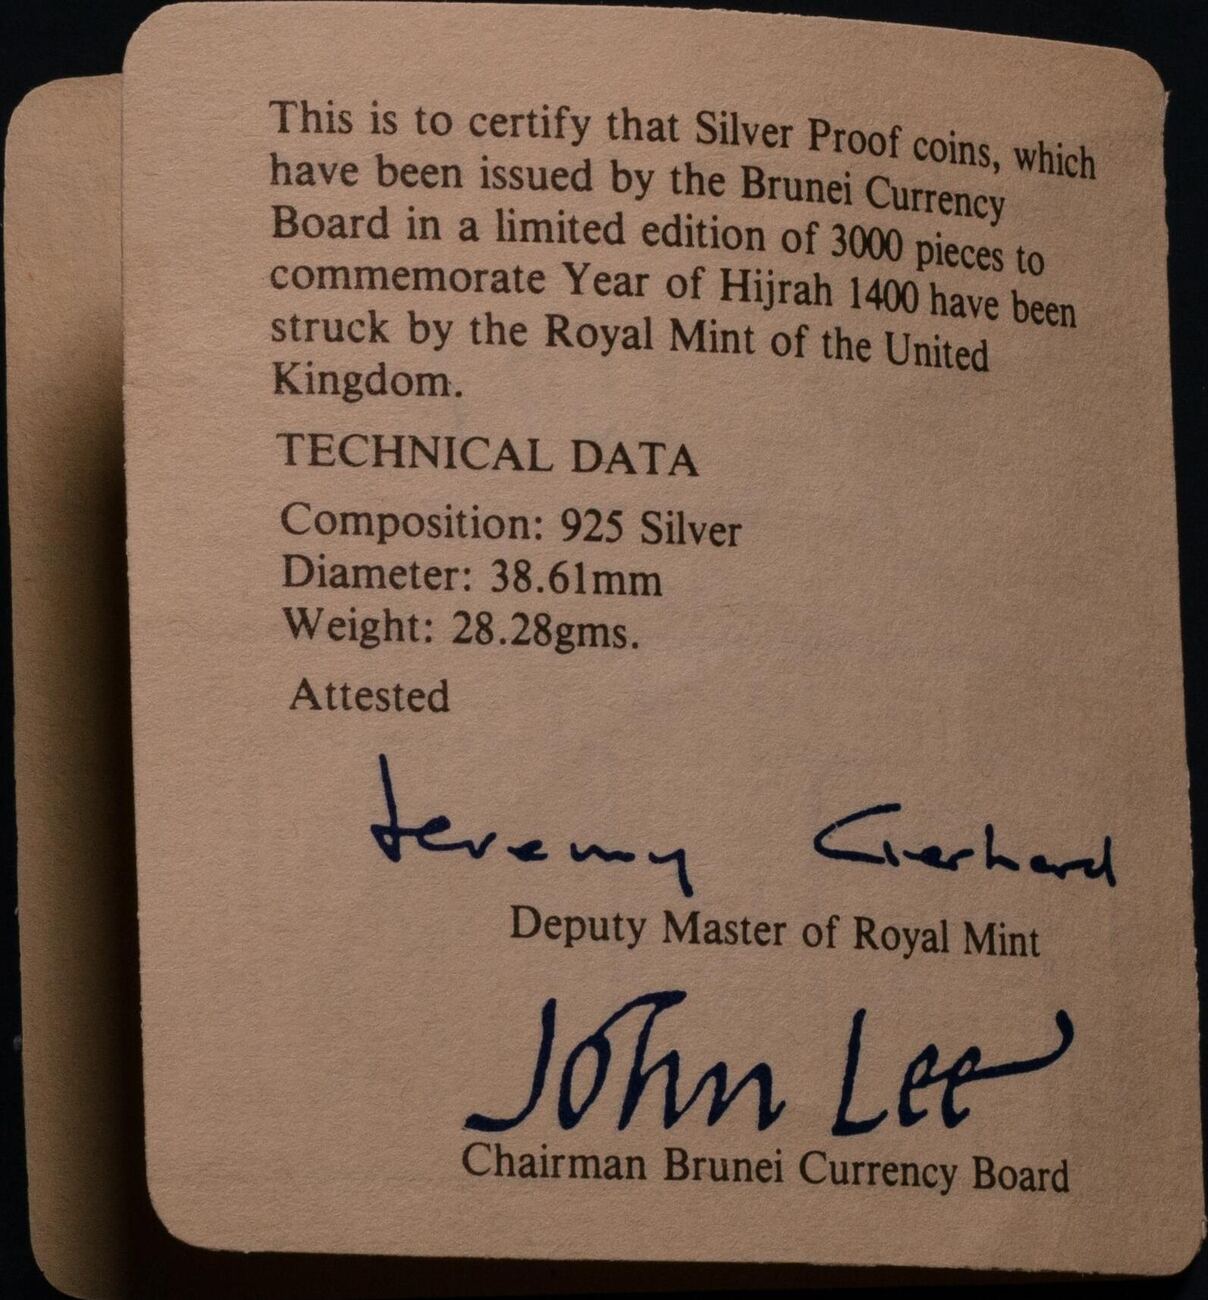 This is to certify that Silver Proof coins, which
have been issued by the Brunei Currency
Board in a limited edition of 3000 pieces to
commemorate Year of Hijrah 1400 have been
struck by the Royal Mint of the United
Kingdom.
TECHNICAL DATA
Composition: 925 Silver
Diameter: 38.61mm
Weight: 28.28gms.
Attested
Jeremy Gerhard
Deputy Master of Royal Mint
John Lee
Chairman Brunei Currency Board